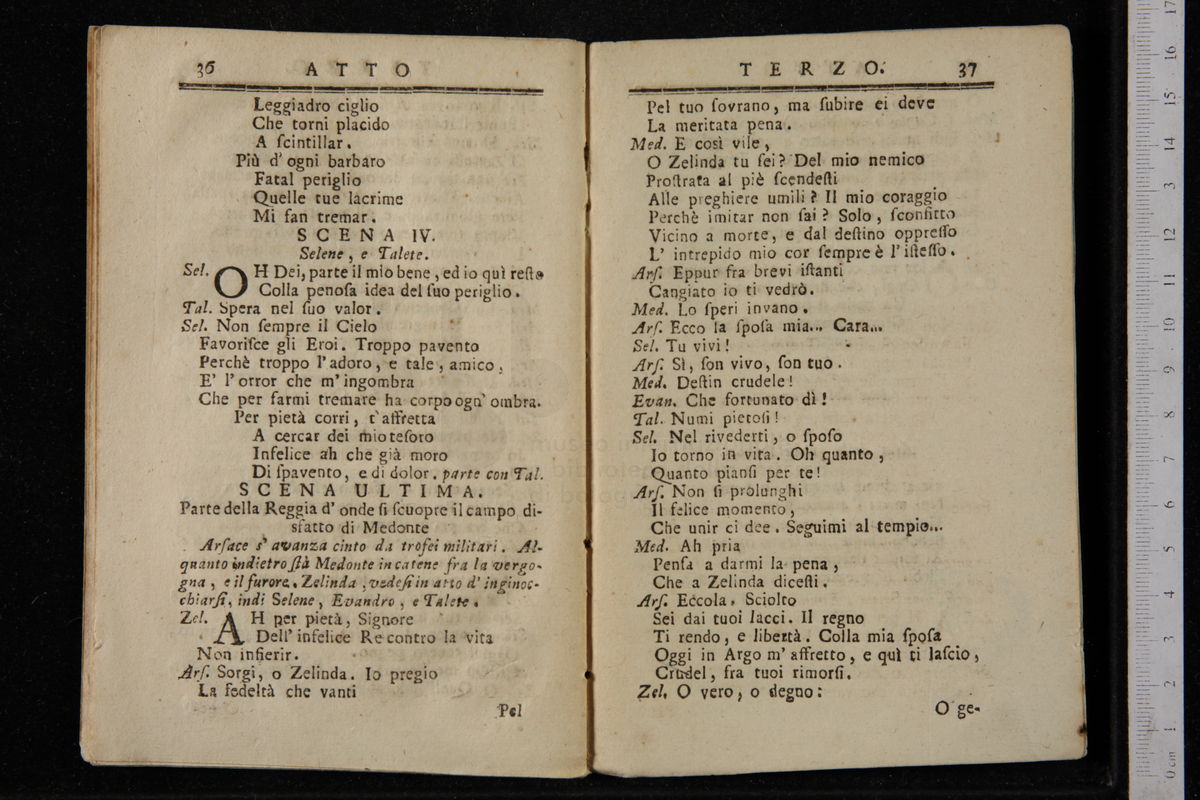 36 A T T O
Leggiadro ciglio
Che torni placido
A ſcintillar.
Più d' ogni barbaro
Fatal periglio
Quelle tue lacrime
Mi fan tremar.
S C E N A IV.
Selene, e Talete.
Sel. OH Dei, parte il mio bene, ed io quì reſto
Colla penoſa idea del ſuo periglio.
Tal. Spera nel ſuo valor.
Sel. Non ſempre il Cielo
Favoriſce gli Eroi. Troppo pavento
Perchè troppo l'adoro, e tale, amico,
E' l'orror che m'ingombra
Che per farmi tremare ha corpo ogn' ombra.
Per pietà corri, t'affretta
A cercar dei mio teſoro
Infelice ah che già moro
Di ſpavento, e di dolor. parte con Tal.
S C E N A U L T I M A.
Parte della Reggia d' onde ſi ſcuopre il campo di-
sfatto di Medonte
Arſace s' avanza cinto da trofei militari. Al-
quanto indietro ſtà Medonte in catene fra la vergo-
gna, e il furore. Zelinda, vedeſi in atto d' inginoc-
chiarſi, indi Selene, Evandro, e Talete.
Zel. AH per pietà, Signore
Dell' infelice Re contro la vita
Non infierir.
Arſ. Sorgi, o Zelinda. Io pregio
La fedeltà che vanti
Pel
T E R Z O. 37
Pel tuo ſovrano, ma ſubire ei deve
La meritata pena.
Med. E così vile,
O Zelinda tu ſei? Del mio nemico
Proſtrata al piè ſcendeſti
Alle preghiere umili? Il mio coraggio
Perchè imitar non ſai? Solo, ſconfitto
Vicino a morte, e dal deſtino oppreſſo
L' intrepido mio cor ſempre è l'iſteſſo.
Arſ. Eppur fra brevi iſtanti
Cangiato io ti vedrò.
Med. Lo ſperi invano.
Arſ. Ecco la ſpoſa mia... Cara...
Sel. Tu vivi!
Arſ. Sì, ſon vivo, ſon tuo.
Med. Deſtin crudele!
Evan. Che fortunato dì!
Tal. Numi pietoſi!
Sel. Nel rivederti, o ſpoſo
Io torno in vita. Oh quanto,
Quanto pianſi per te!
Arſ. Non ſi prolunghi
Il felice momento,
Che unir ci dee. Seguimi al tempio...
Med. Ah pria
Penſa a darmi la pena,
Che a Zelinda diceſti.
Arſ. Eccola. Sciolto
Sei dai tuoi lacci. Il regno
Ti rendo, e libertà. Colla mia ſpoſa
Oggi in Argo m'affretto, e quì ti laſcio,
Crudel, fra tuoi rimorſi.
Zel. O vero, o degno:
O ge-
0 cm 1 2 3 4 5 6 7 8 9 10 11 12 13 14 15 16 17